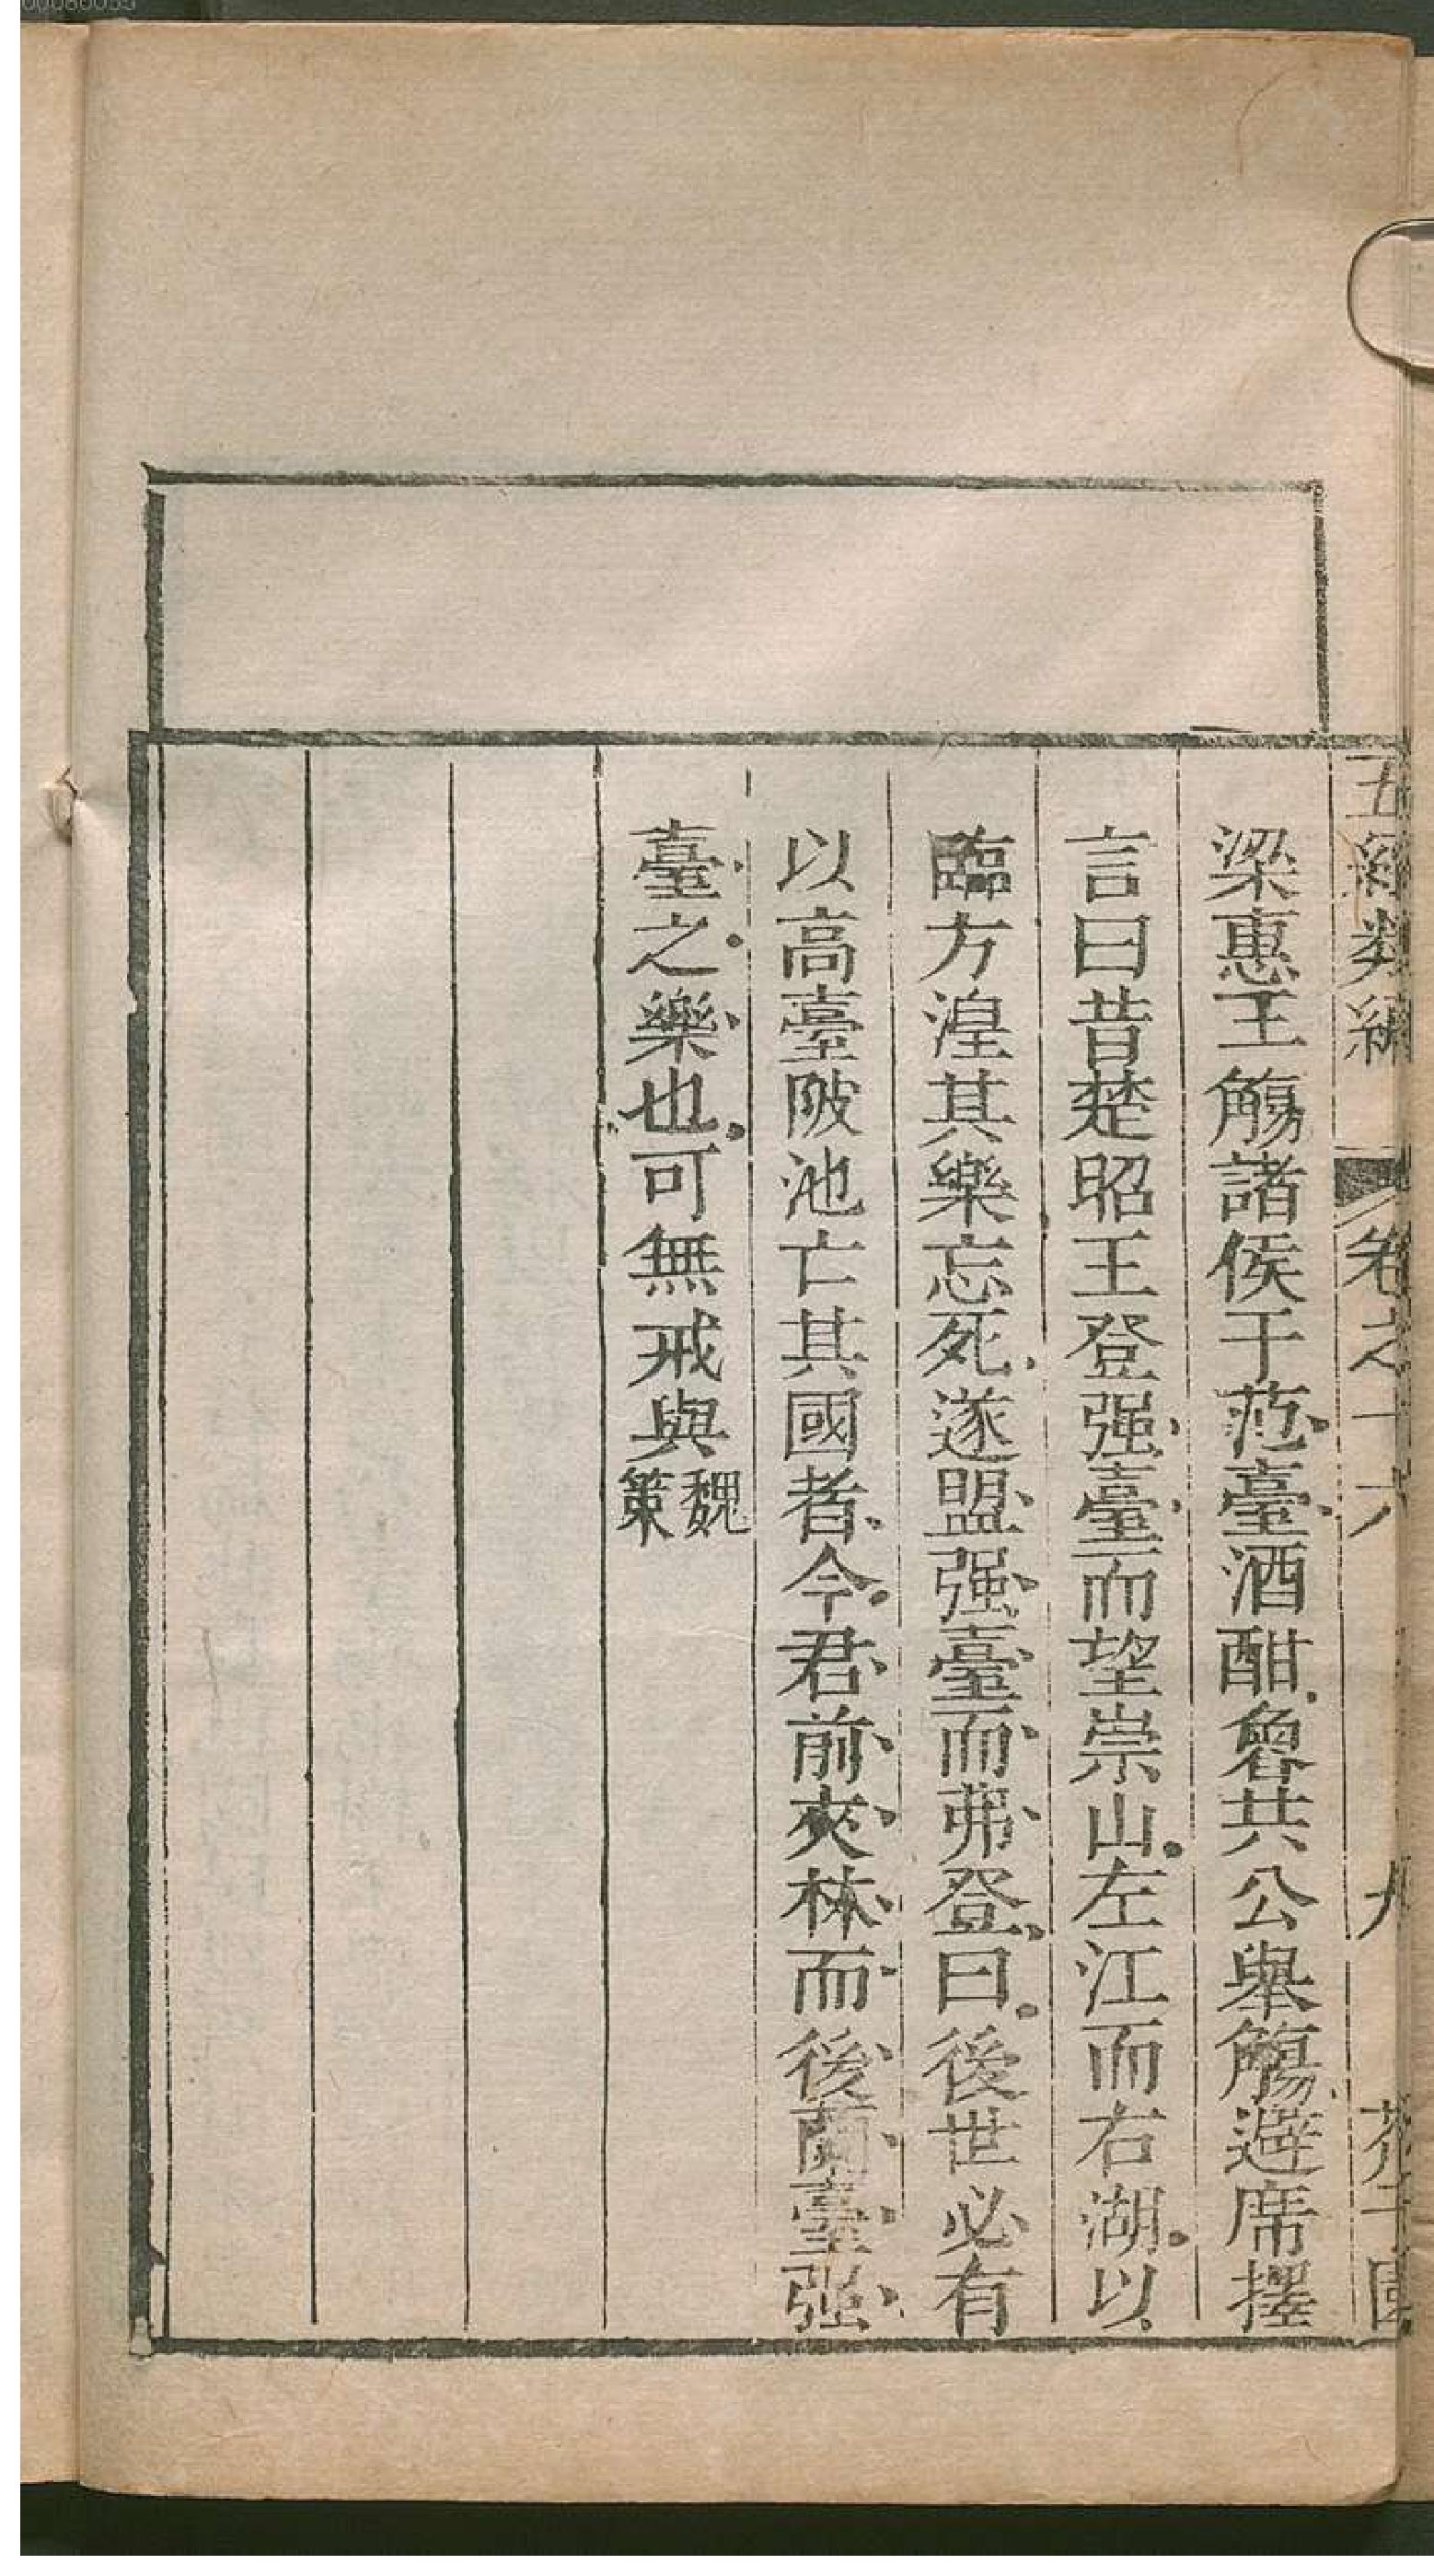 五經類編 卷之十六 九 芥子園
梁惠王觴諸侯于范臺酒酣魯共公舉觴避席擇
言曰昔楚昭王登强臺而望崇山左江而右湖以
臨方湟其樂忘死遂盟强臺而弗登曰後世必有
以高臺陂池亡其國者今君前夾林而後蘭臺强
臺之樂也可無戒與魏策